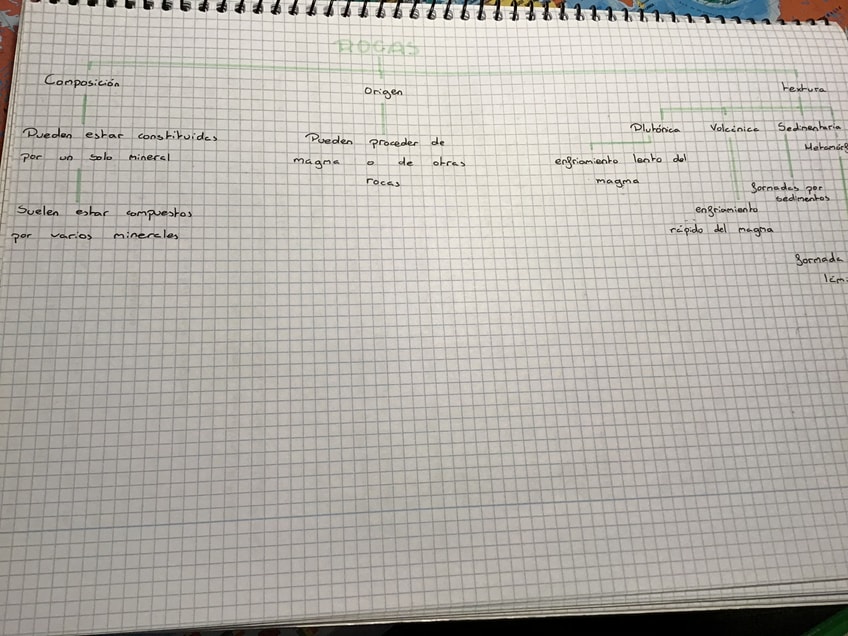 ROCAS
Composición
Origen
textura
Pueden estar constituidas
por un solo mineral
Suelen estar compuestos
por varios minerales
Pueden proceder de
magma o de otras
rocas
Plutónica
Volcánica
Sedimentaria
enfriamiento lento del
magma
enfriamiento
rápido del magma
formadas por
sedimentos
formada